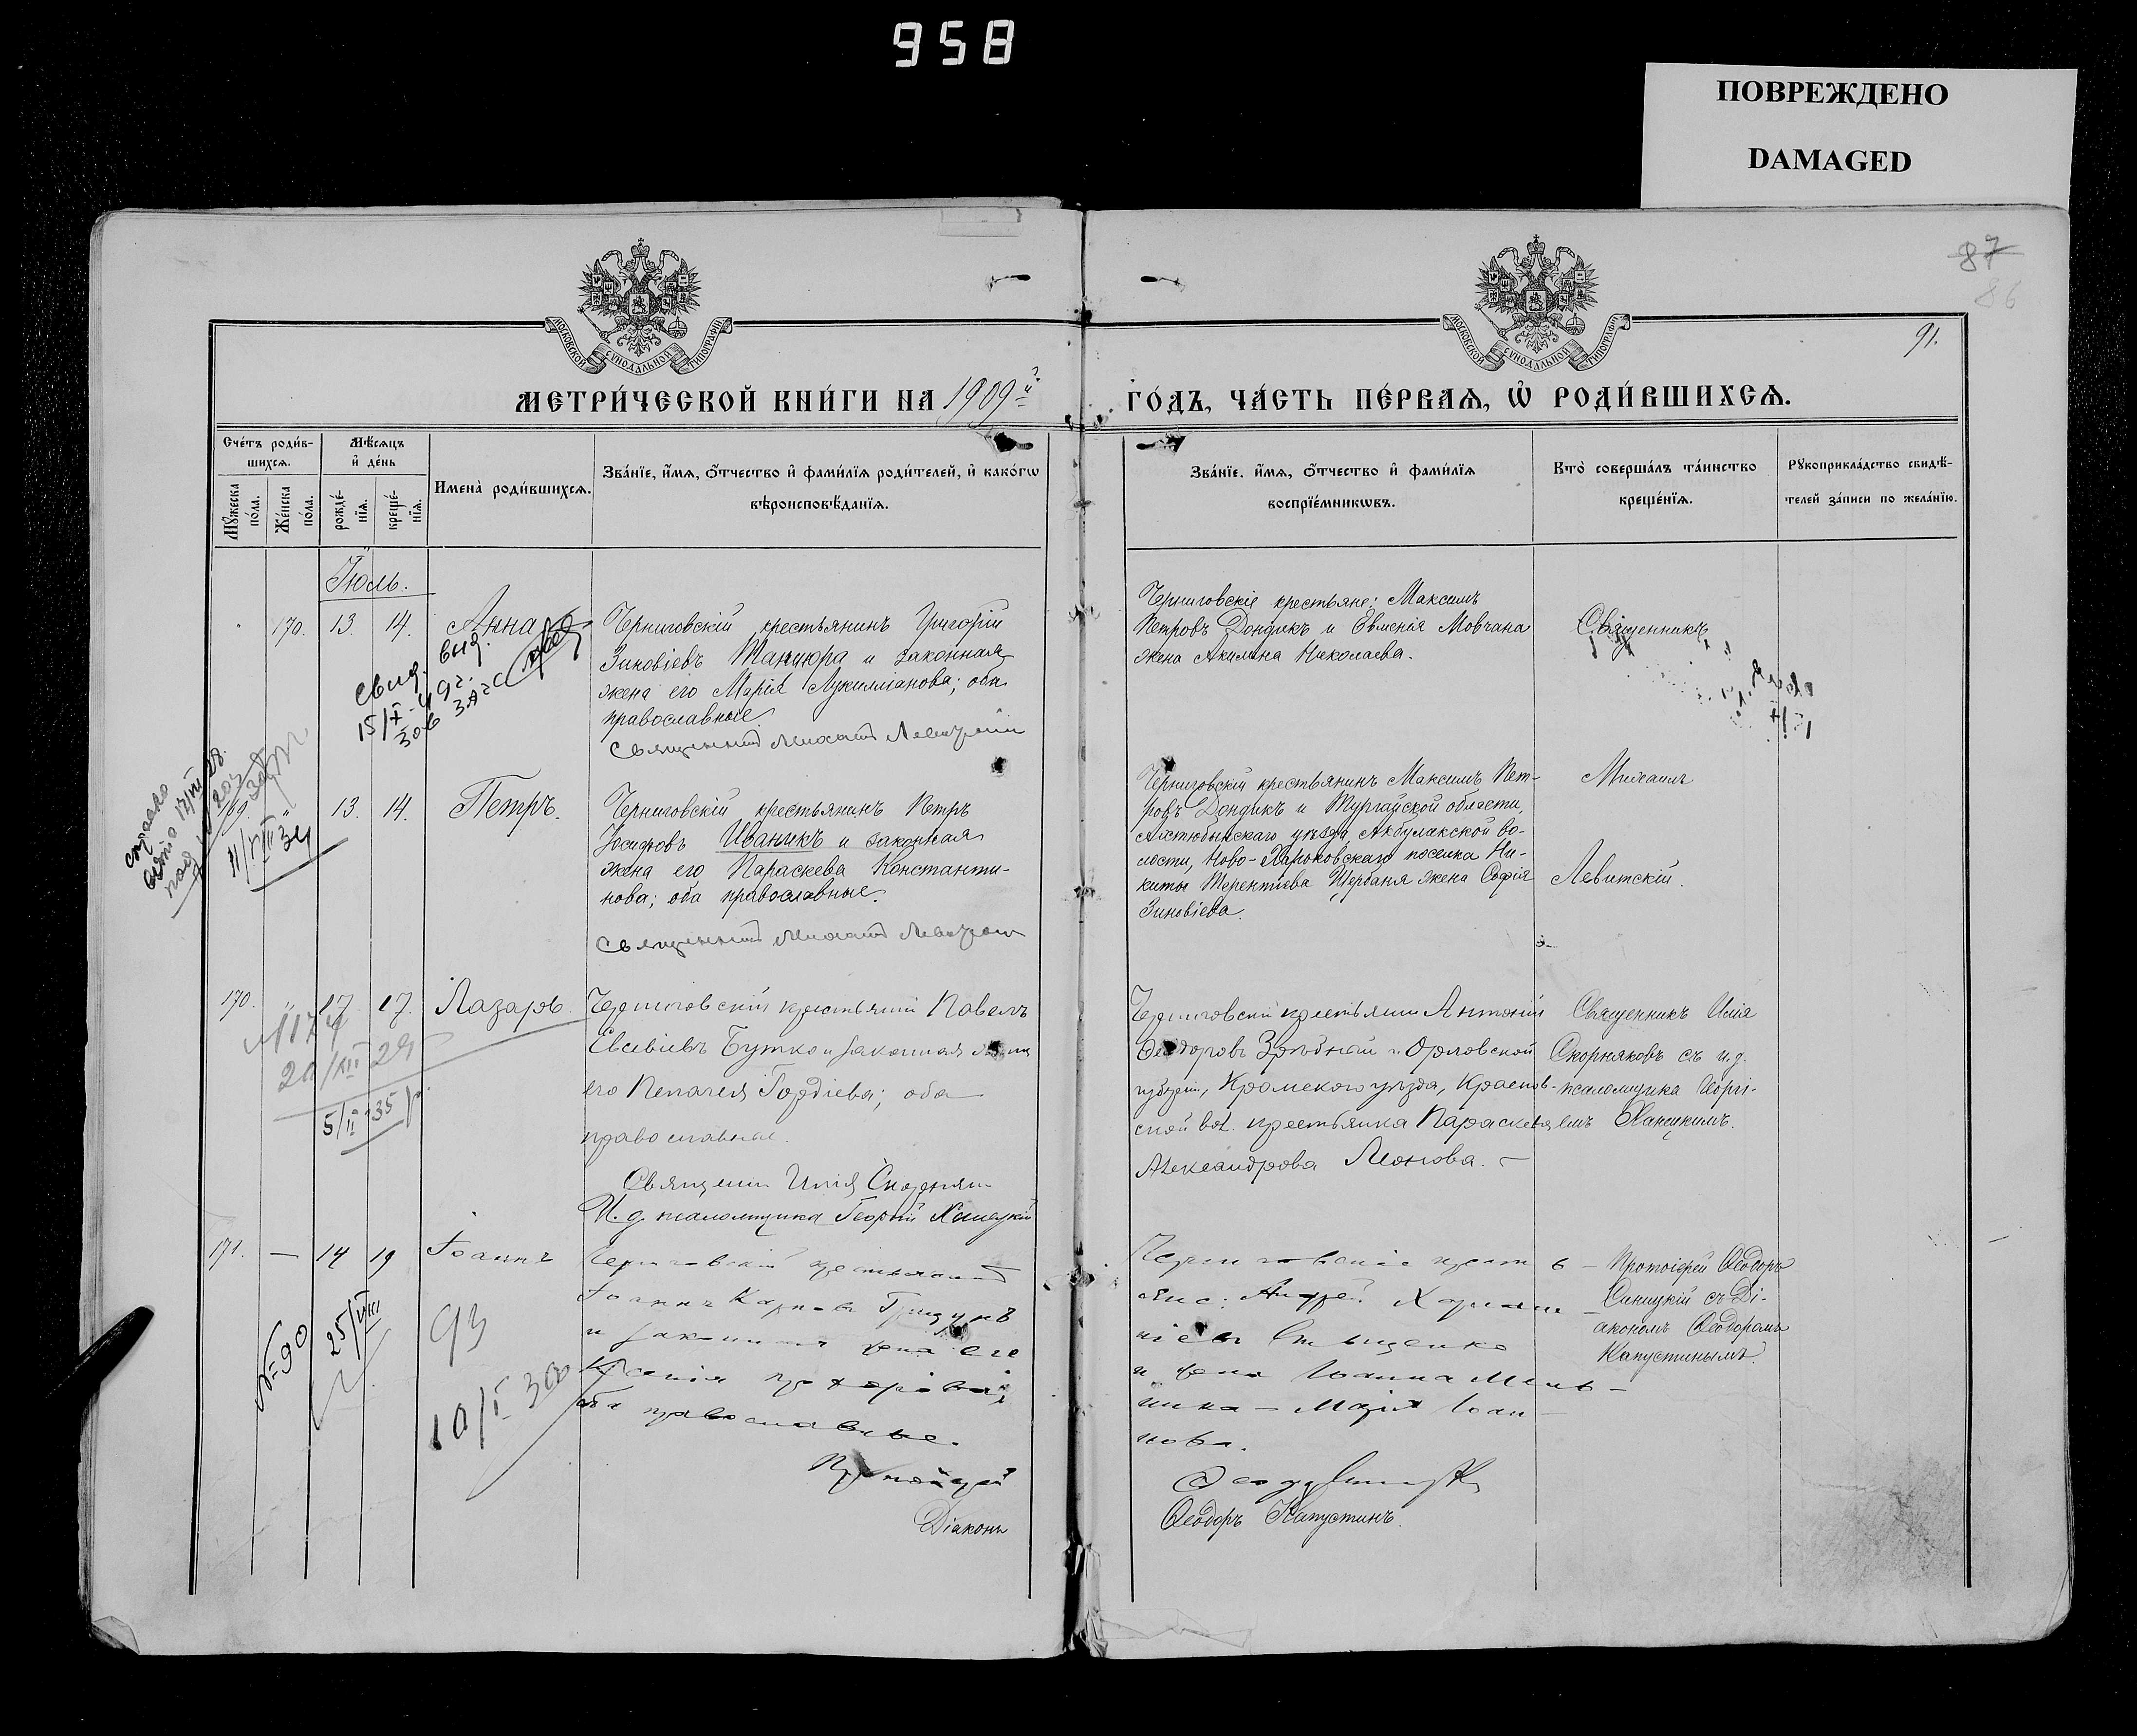 958
ПОВРЕЖДЕНО
DAMAGED
87
86
91.
МОСКОВСКОЙ СУНОДАЛЬНОЙ ТИПОГРАФІИ
МОСКОВСКОЙ СУНОДАЛЬНОЙ ТИПОГРАФІИ
МЕТРИ́ЧЕСКОЙ КНИ́ГИ НА 1909й
ГО́ДЪ, ЧА́СТЬ ПЕ́РВАѦ, Ѡ҆ РОДИ́ВШИХСѦ.
Сче́тъ роди́в-
шихсѧ.
Мꙋ́жеска по́ла.
Же́нска пола.
Мѣ́сѧцъ
и҆ де́нь
рожде́-
нїѧ.
креще́-
нїѧ.
Имена̀ роди́вшихсѧ.
Зва́нїе, и҆́мѧ, ѻ҆́тчество и҆ фами́лїѧ роди́телей, и҆ како́гѡ
вѣроисповѣ́данїѧ.
Зва́нїе. и҆́мѧ, ѻ҆́тчество и҆ фами́лїѧ
воспрїе́мникѡвъ.
Кто̀ соверша́лъ та́инство
креще́нїѧ.
Рꙋкоприкла́дство свидѣ́-
телей за́писи по жела́нїю.
Іюль.
170. 13. 14. Анна
Черниговскій крестьянинъ Григорій
Зиновіевъ Танцюра и законная
жена его Марія Лукилліанова; оба
православные.
Священникъ Михаилъ Левитскій
свид. выд.
15/X-49г.
306 ЗАГС
Черниговскіе крестьяне: Максимъ
Петровъ Дондикъ и Евменія Мовчана
жена Акилина Николаева.
Священникъ
169. " 13. 14. Петръ.
11/VIII 34
Черниговскій крестьянинъ Петръ
Іосифовъ Иваникъ и законная
жена его Параскева Константи-
нова; оба православные.
Священникъ Михаилъ Левитскій
Черниговскій крестьянинъ Максимъ Пет-
ровъ Дондикъ и Тургайской области,
Актюбинскаго уѣзда, Акбулакской во-
лости, Ново-Харьковскаго поселка Ни-
киты Терентіева Щербаня жена Софія
Зиновіева.
Михаилъ
Левитскій.
170. " 17 17. Лазарь
20/XII 29
5/II 35 г.
Черниговскій крестьянинъ Павелъ
Евсевіевъ Бутко и законная жена
его Пелагея Гордіева; оба
православные.
Священникъ Илія Скорняк
И. д. псаломщика Георгій Ханецкій
Черниговскій крестьянинъ Антоній
Ѳеодоровъ и Орловской
губерніи, Кромскаго уѣзда,
ской вол. крестьянка Параскева
Александрова Леонова.
Священникъ Илія
Скорняковъ съ и.д.
псаломщика Георгі-
емъ Ханецкимъ.
171. — 14 19 Іоаннъ
№90 25/VIII
93
10/I 30
Черниговскій крестьянинъ
Іоаннъ Карповъ
и законная жена его
Ксенія
оба православные.
Протоіерей
Діаконъ
Черниговскіе кресть-
яне: Андрей
и жена Іоанна Мель-
ника — Марія Іоан-
нова.
Ѳеодоръ Капустинъ.
Протоіерей Ѳеодоръ
Синицкій съ Ді-
акономъ Ѳеодоромъ
Капустинымъ.